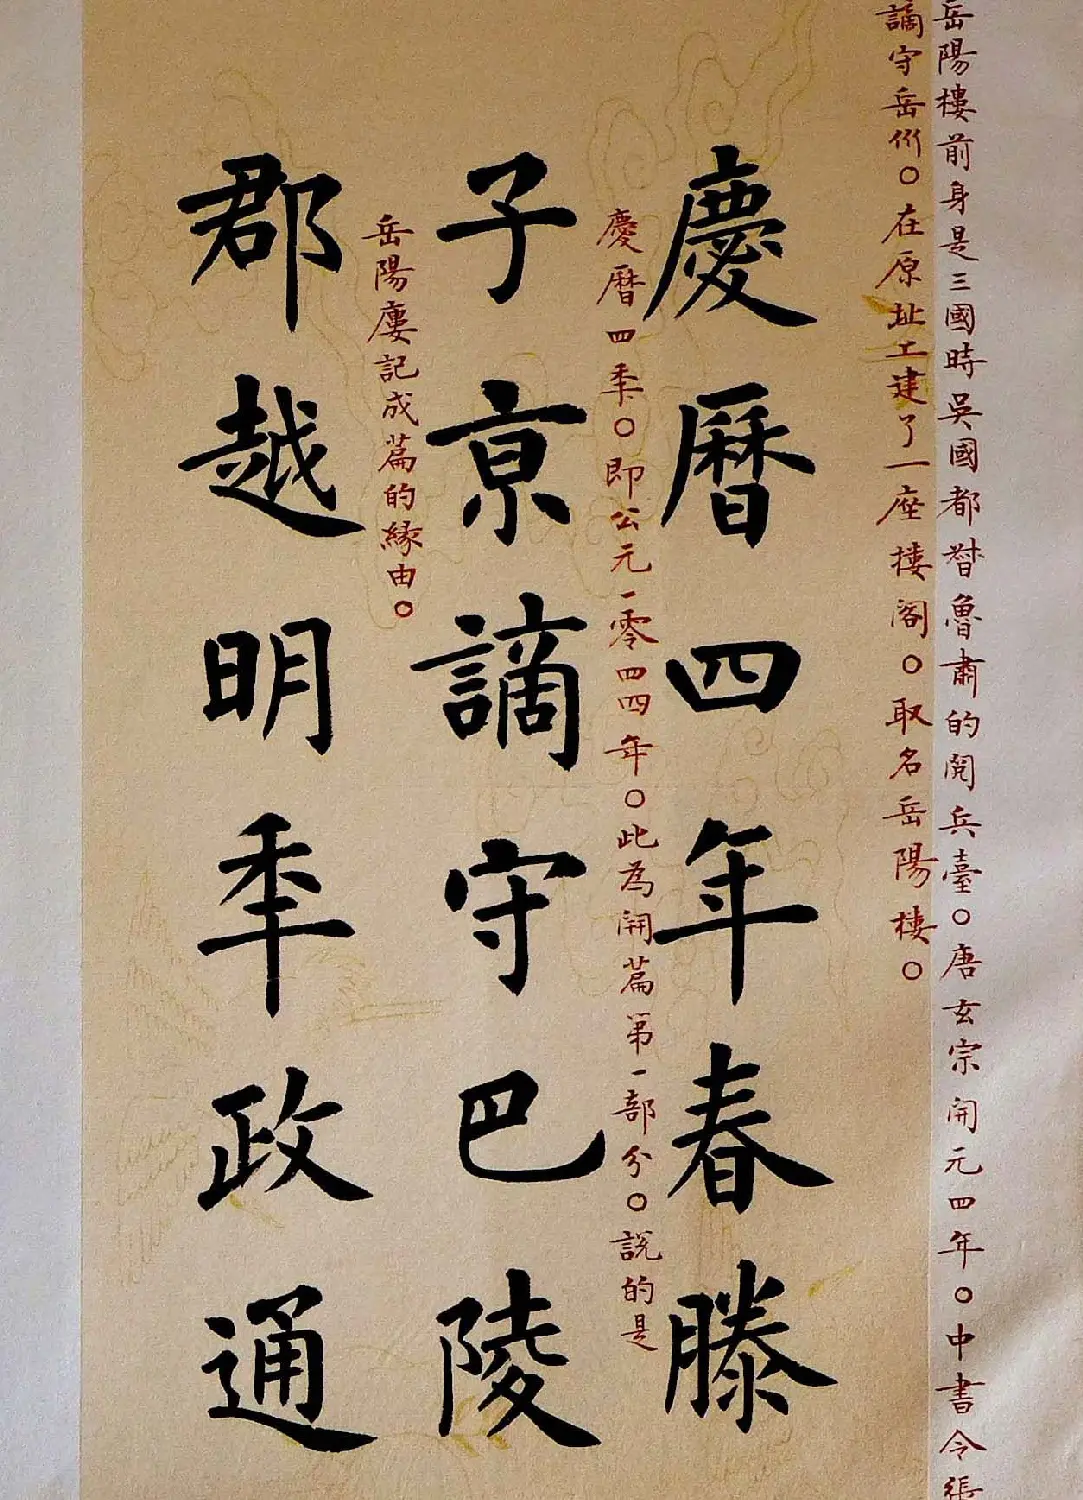 岳陽樓前身是三國時吳國都督魯肅的閱兵臺○唐玄宗開元四年○中書令張
謫守岳州○在原址上建了一座樓閣○取名岳陽樓○
慶曆四年春滕
慶曆四秊○即公元一零四四年○此為開篇第一部分○説的是
子京謫守巴陵
岳陽廔記成篇的緣由○
郡越明秊政通